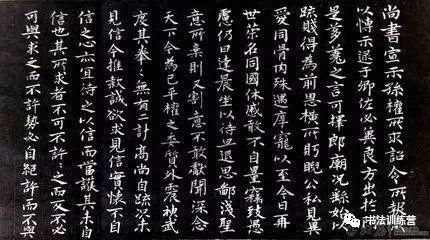 尚書宣示孫權所求詔令所報所
以博示逮于卿佐必冀良方出於阿
是芻蕘之言可擇郎廟況繇始以
踈賤得為前恩橫所盻睨公私見異
愛同骨肉殊遇厚寵以至今日再
世榮名同國休慼敢不自量竊致愚
慮仍日達晨坐以待旦退思鄙淺聖
意所棄則又割意不敢獻聞深念
天下今為已平權之委質外震神武
度其拳拳無有二計高尚自踈況未
見信今推款誠欲求見信實懷不自
信之心亦宜待之以信而當護其未自
信也其所求者不可不許許之而反不必
可與求之而不許勢必自絕許而不與
书法训练营